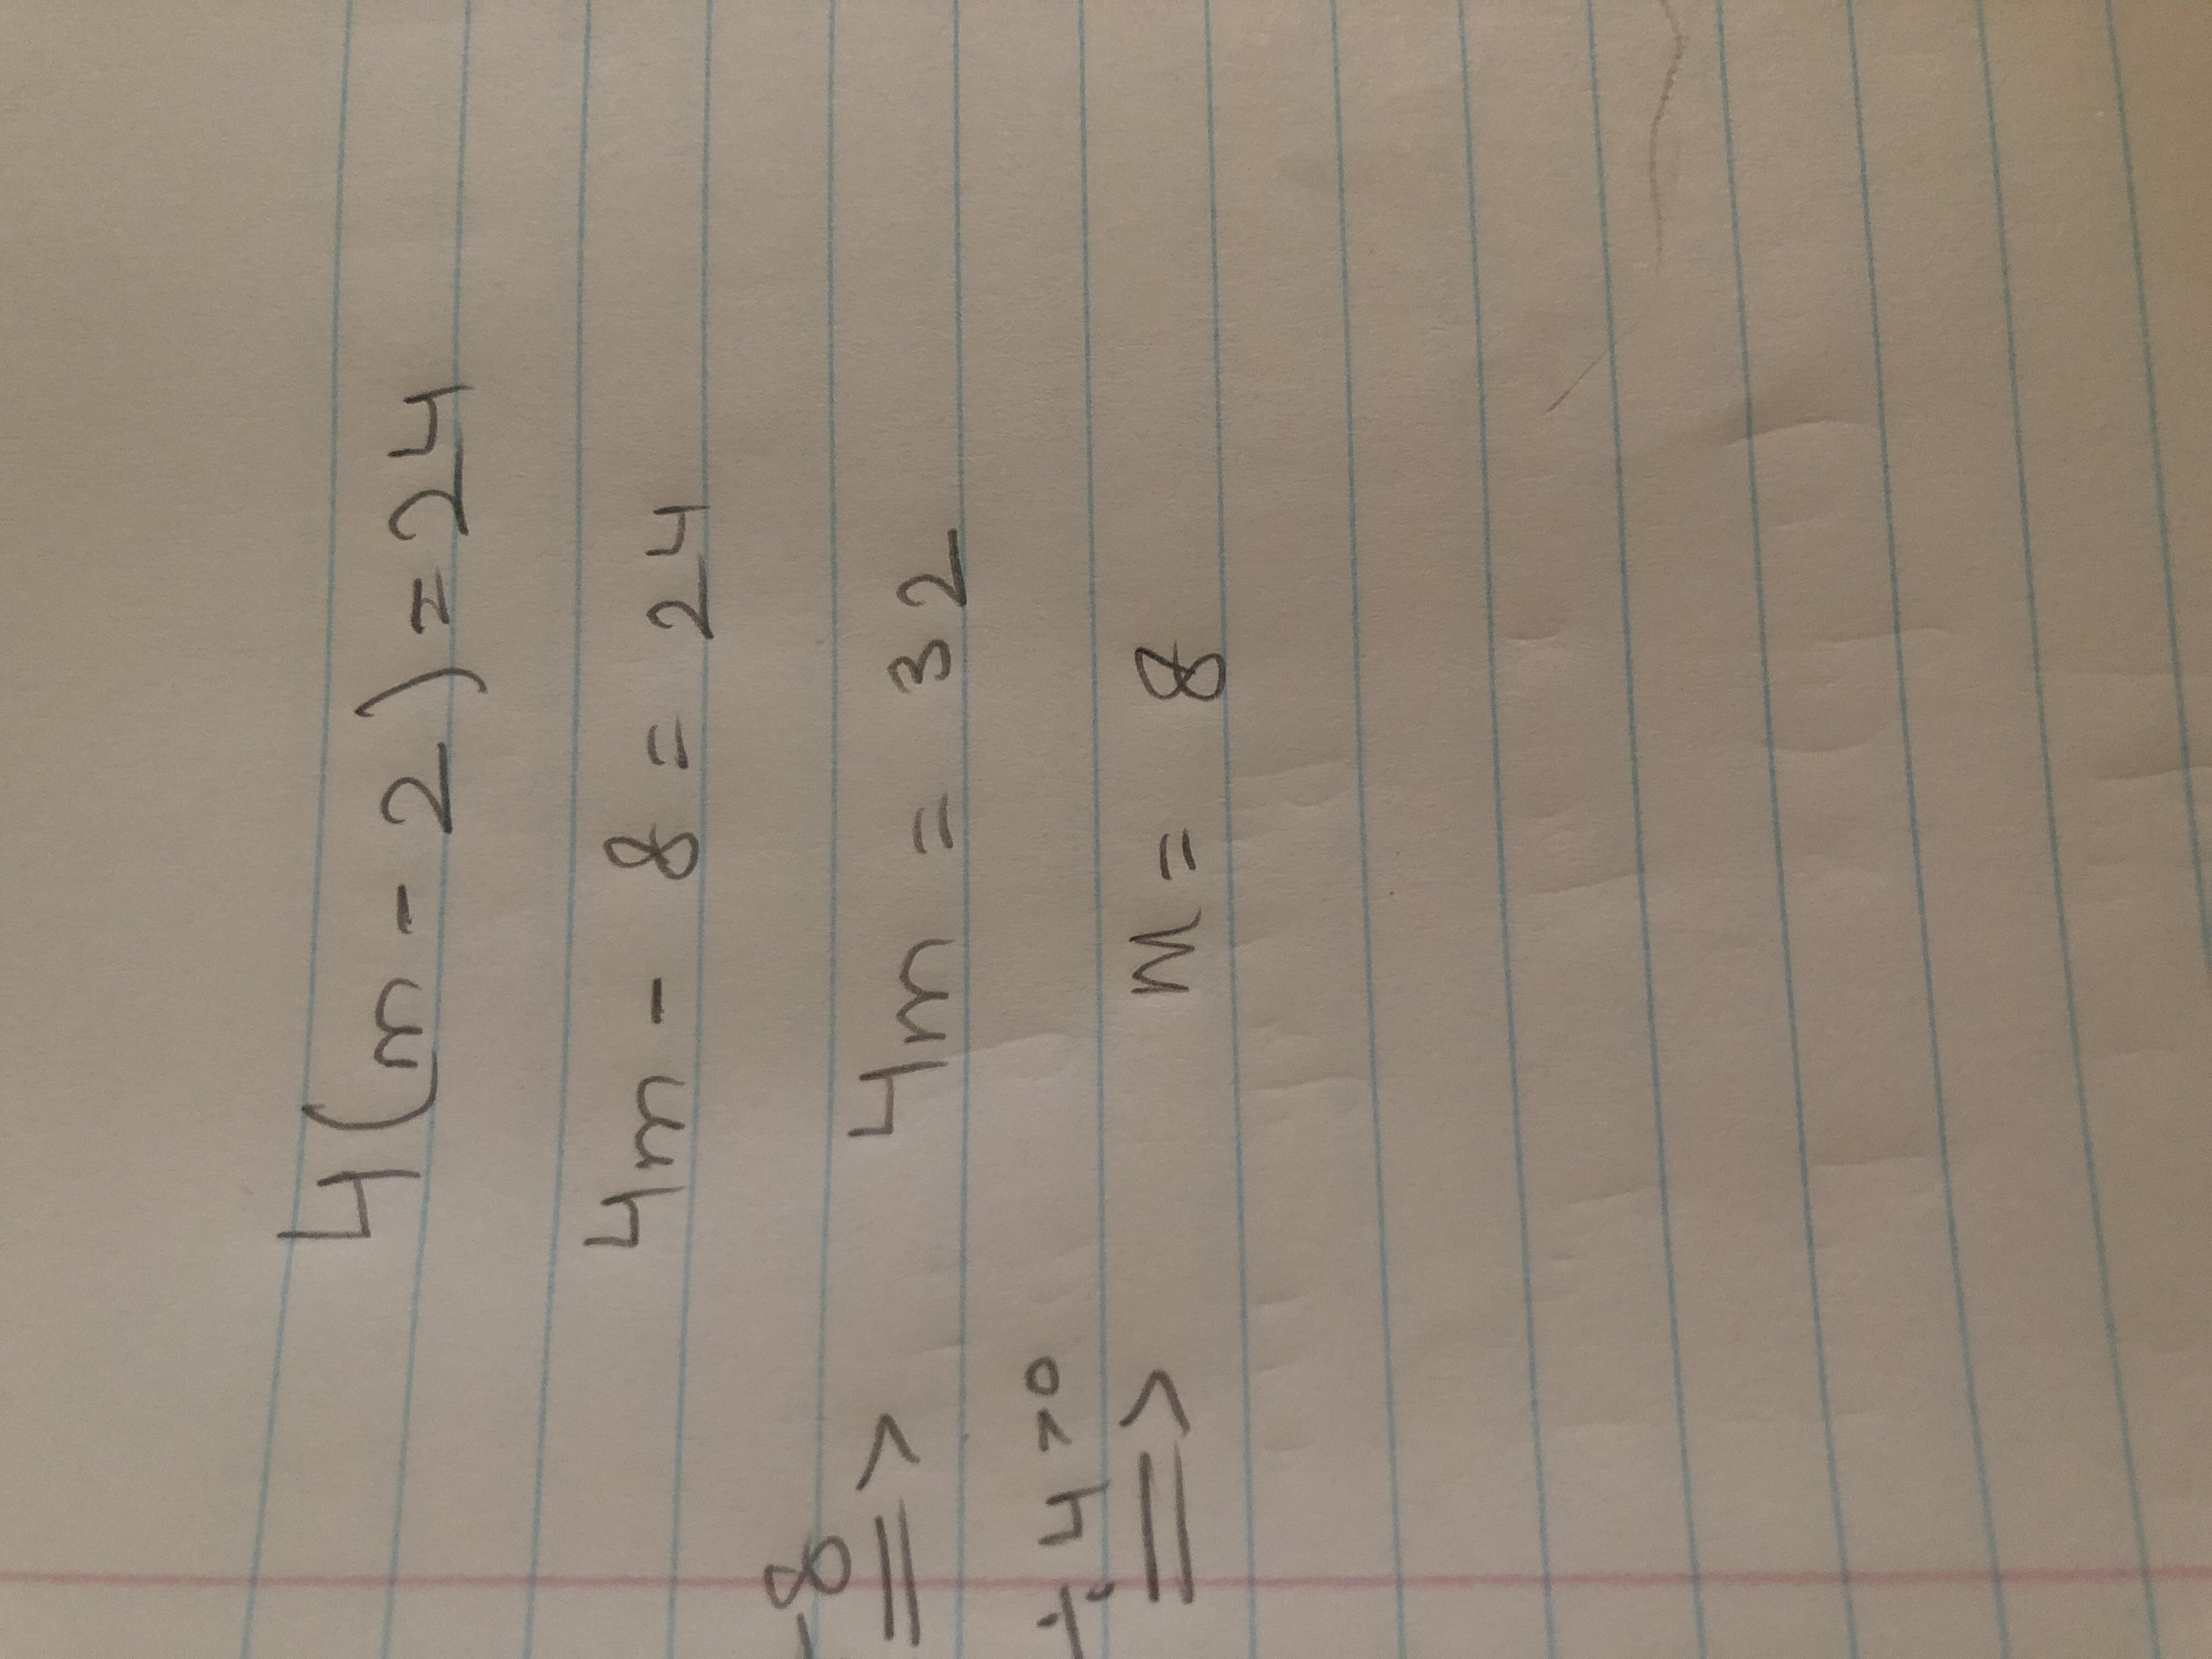 4(m-2)=24
4m-8=24
-8
=> 4m = 32
÷4>0
=> m = 8